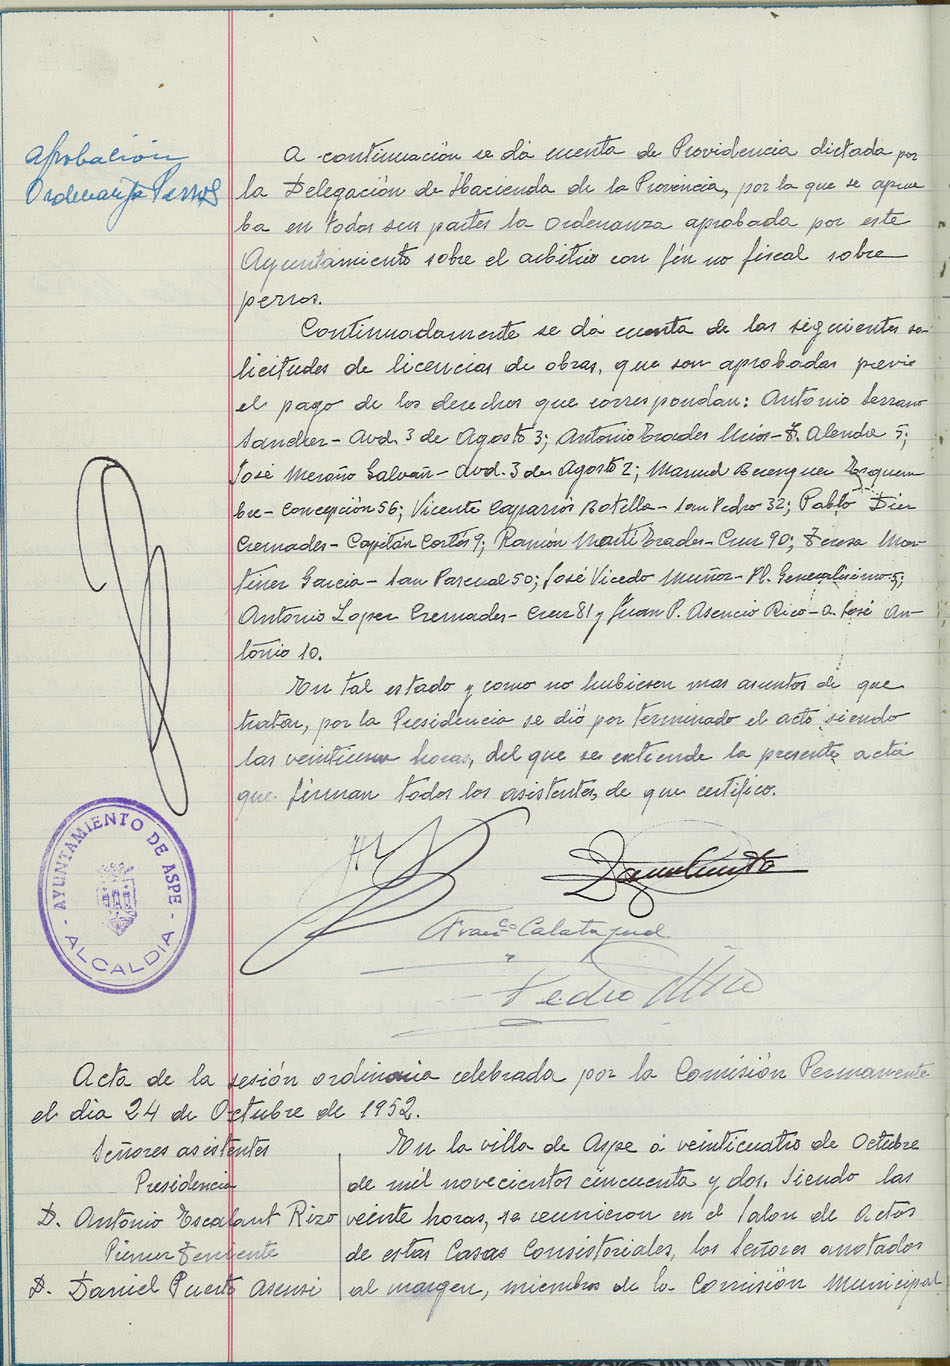 Aprobación
Ordenanza Perros
A continuación se dá cuenta de Providencia dictada por
la Delegación de Hacienda de la Provincia, por la que se aprue
ba en todas sus partes la ordenanza aprobada por este
Ayuntamiento sobre el arbitrio con fin no fiscal sobre
perros.
Continuadamente se dá cuenta de las siguientes so-
licitudes de licencias de obras, que son aprobadas previo
el pago de los derechos que correspondan: Antonio Serrano
Sanchez - Avd. 3 de Agosto 3; Antonio Prades - Alenda 5;
José Meroño Galvañ - Avd. 3 de Agosto 2; Manuel Berenguer
bre - Concepción 56; Vicente Caparrós Botella - San Pedro 32; Pablo Diez
Cremades - Capitán Cortés 9; Ramón Martí Prades - Cruz 90; Teresa Mar-
tinez Garcia - San Pascual 50; José Vicedo Muñoz - Pl. Generalisimo 5;
Antonio Lopez Cremades - Cruz 81 y Juan P. Asencio Rico - A. José An-
tonio 10.
En tal estado y como no hubiesen mas asuntos de que
tratar, por la Presidencia se dió por terminado el acto, siendo
las veintiuna horas, del que se extiende la presente acta
que firman todos los asistentes, de que certifico.
AYUNTAMIENTO DE ASPE
ALCALDIA
Franco Calatayud
Pedro
Acta de la sesión ordinaria celebrada por la Comisión Permanente
el dia 24 de Octubre de 1952.
Señores asistentes
Presidencia
D. Antonio Escalant Rizo
Primer Teniente
D. Daniel Puerto Asensi
En la villa de Aspe á veinticuatro de Octubre
de mil novecientos cincuenta y dos. Siendo las
veinte horas, se reunieron en el Salon de Actos
de estas Casas Consistoriales, los Señores anotados
al margen, miembros de la Comisión Municipal